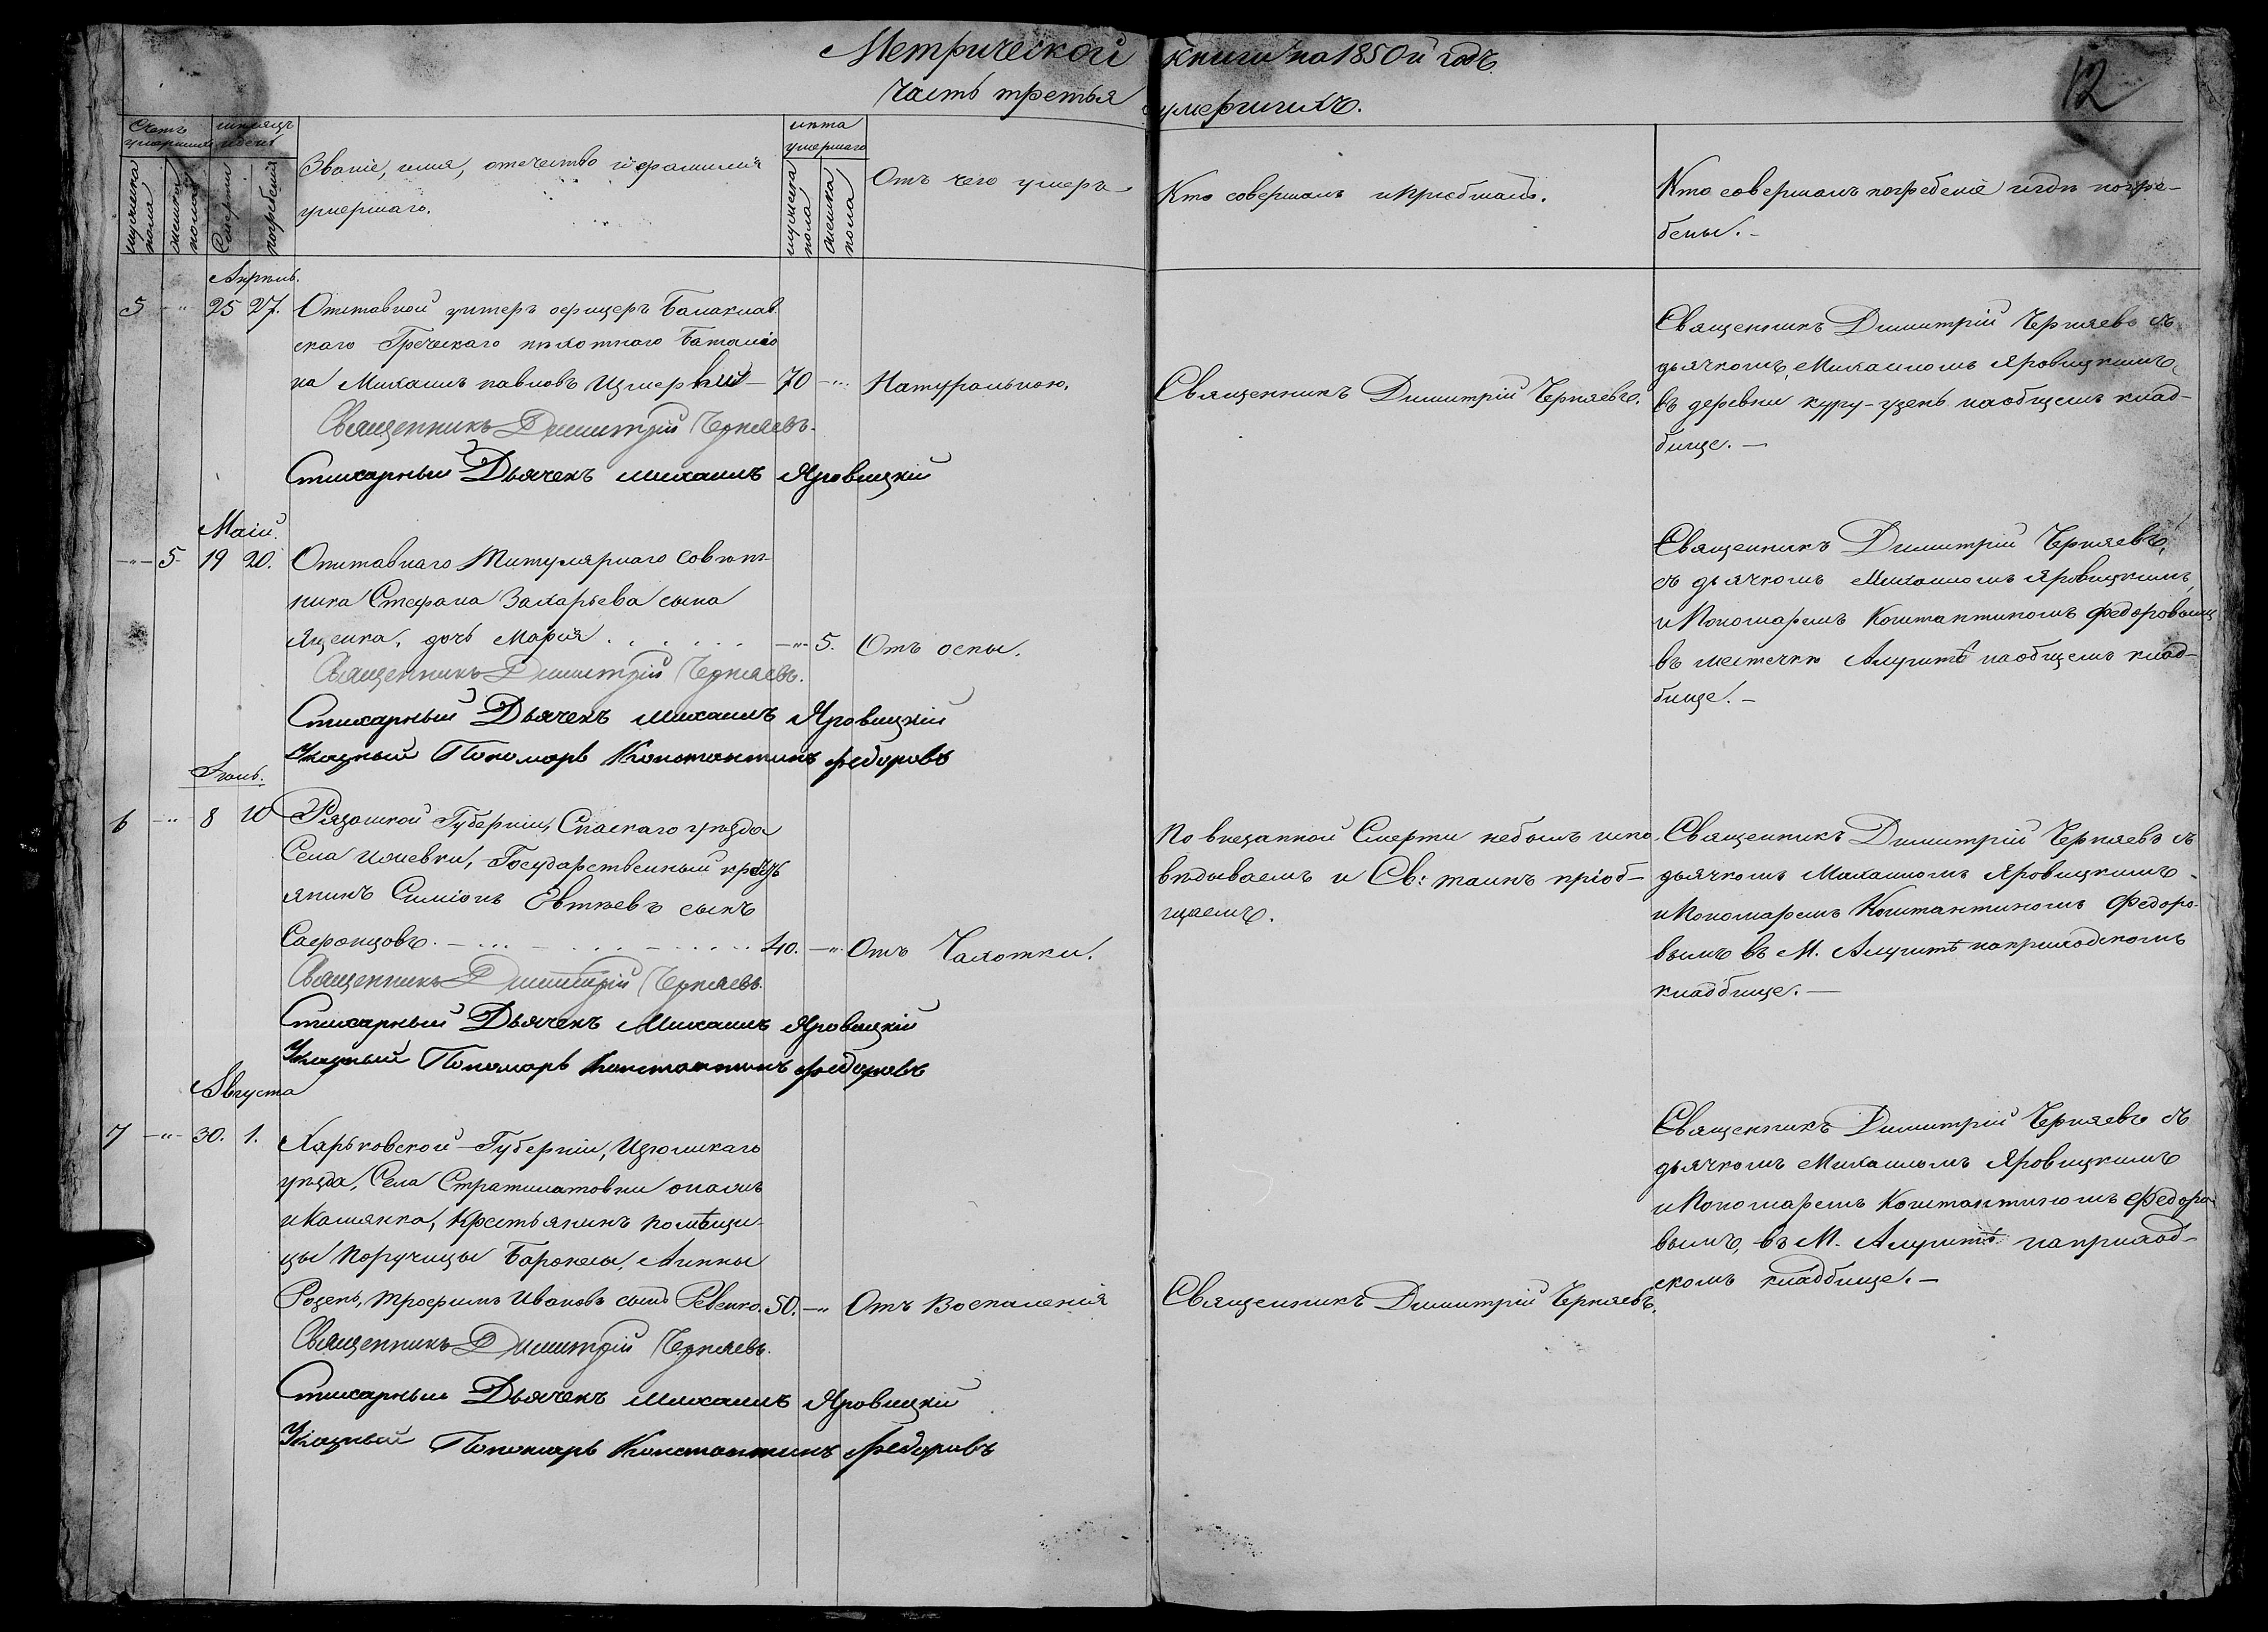 Метрической книги на 1850й годъ.
Часть третья умершихъ.
12
Счетъ умершихъ
мужеска пола
женска пола
месяцъ и день
Смерти
погребенія
Званіе, имя, отечество и фамилія
умершаго.
лѣта умершаго
мужеска пола
женска пола
Отъ чего умеръ
Кто совершалъ и пріобщалъ.
Кто совершалъ погребеніе и гдѣ погре-
бены.
Апрѣль.
5 -"- 25 27. Отставной унтеръ офицеръ Балаклав
скаго Греческаго пѣхотнаго баталіо
на Михаилъ павловъ 70 -"- Натуральною.
Священникъ Димитрій Черняевъ.
Стихарный Дьячекъ михаилъ Яровицкій
Священникъ Димитрій Черняевъ.
Священникъ Димитрій Черняевъ съ
дьячкомъ Михаиломъ Яровицкимъ,
въ деревни куру-узень на общемъ клад-
бище. —
Маій.
-"- 5 19 20. Отставнаго Титулярнаго совѣт-
ника Стефана Захарьева сына
Яценка, дочь Марія -"- 5. Отъ оспы.
Священникъ Димитрій Черняевъ.
Стихарный Дьячекъ михаилъ Яровицкій
Указный Пономарь Константинъ федоровъ
Священникъ Димитрій Черняевъ,
съ дьячкомъ Михаиломъ Яровицкимъ,
и Пономаремъ Константиномъ Федоровымъ
въ местечкѣ Алуштѣ на общемъ клад-
бище. —
6 -"- 8 10 Рязанской Губерніи, Спаскаго уѣзда
Села Ижевки, Государственный кресть
янинъ Симіонъ Евтѣевъ сынъ
Сафонцовъ. 40. -"- Отъ Чахотки.
Священникъ Димитрій Черняевъ.
Стихарный Дьячекъ Михаилъ Яровицкій
Указный Пономарь Константинъ федоровъ
По внезапной Смерти небылъ испо
вѣдываемъ и Св: таинъ пріоб-
щаемъ.
Священникъ Димитрій Черняевъ съ
дьячкомъ Михаиломъ Яровицкимъ
и Пономаремъ Константиномъ Федоро-
вымъ въ М. Алуштѣ на приходскомъ
кладбище. —
Августа
7 -"- 30. 1. Харьковской Губерніи, Изюмскаго
уѣзда, Села Стратилатовки онажъ
и Камянка, Крестьянинъ помѣщи-
цы Поручицы Баронесы, Анны
Розенъ, Трофимъ Ивановъ сынъ Ревенко. 50. -"- Отъ Воспаленія
Священникъ Димитрій Черняевъ.
Стихарный Дьячекъ михаилъ Яровицкій
Указный Пономарь Константинъ Федоровъ
Священникъ Димитрій Черняевъ.
Священникъ Димитрій Черняевъ съ
дьячкомъ Михаиломъ Яровицкимъ
и Пономаремъ Константиномъ Федоро
вымъ, въ М. Алуштѣ на приход-
скомъ кладбище. —